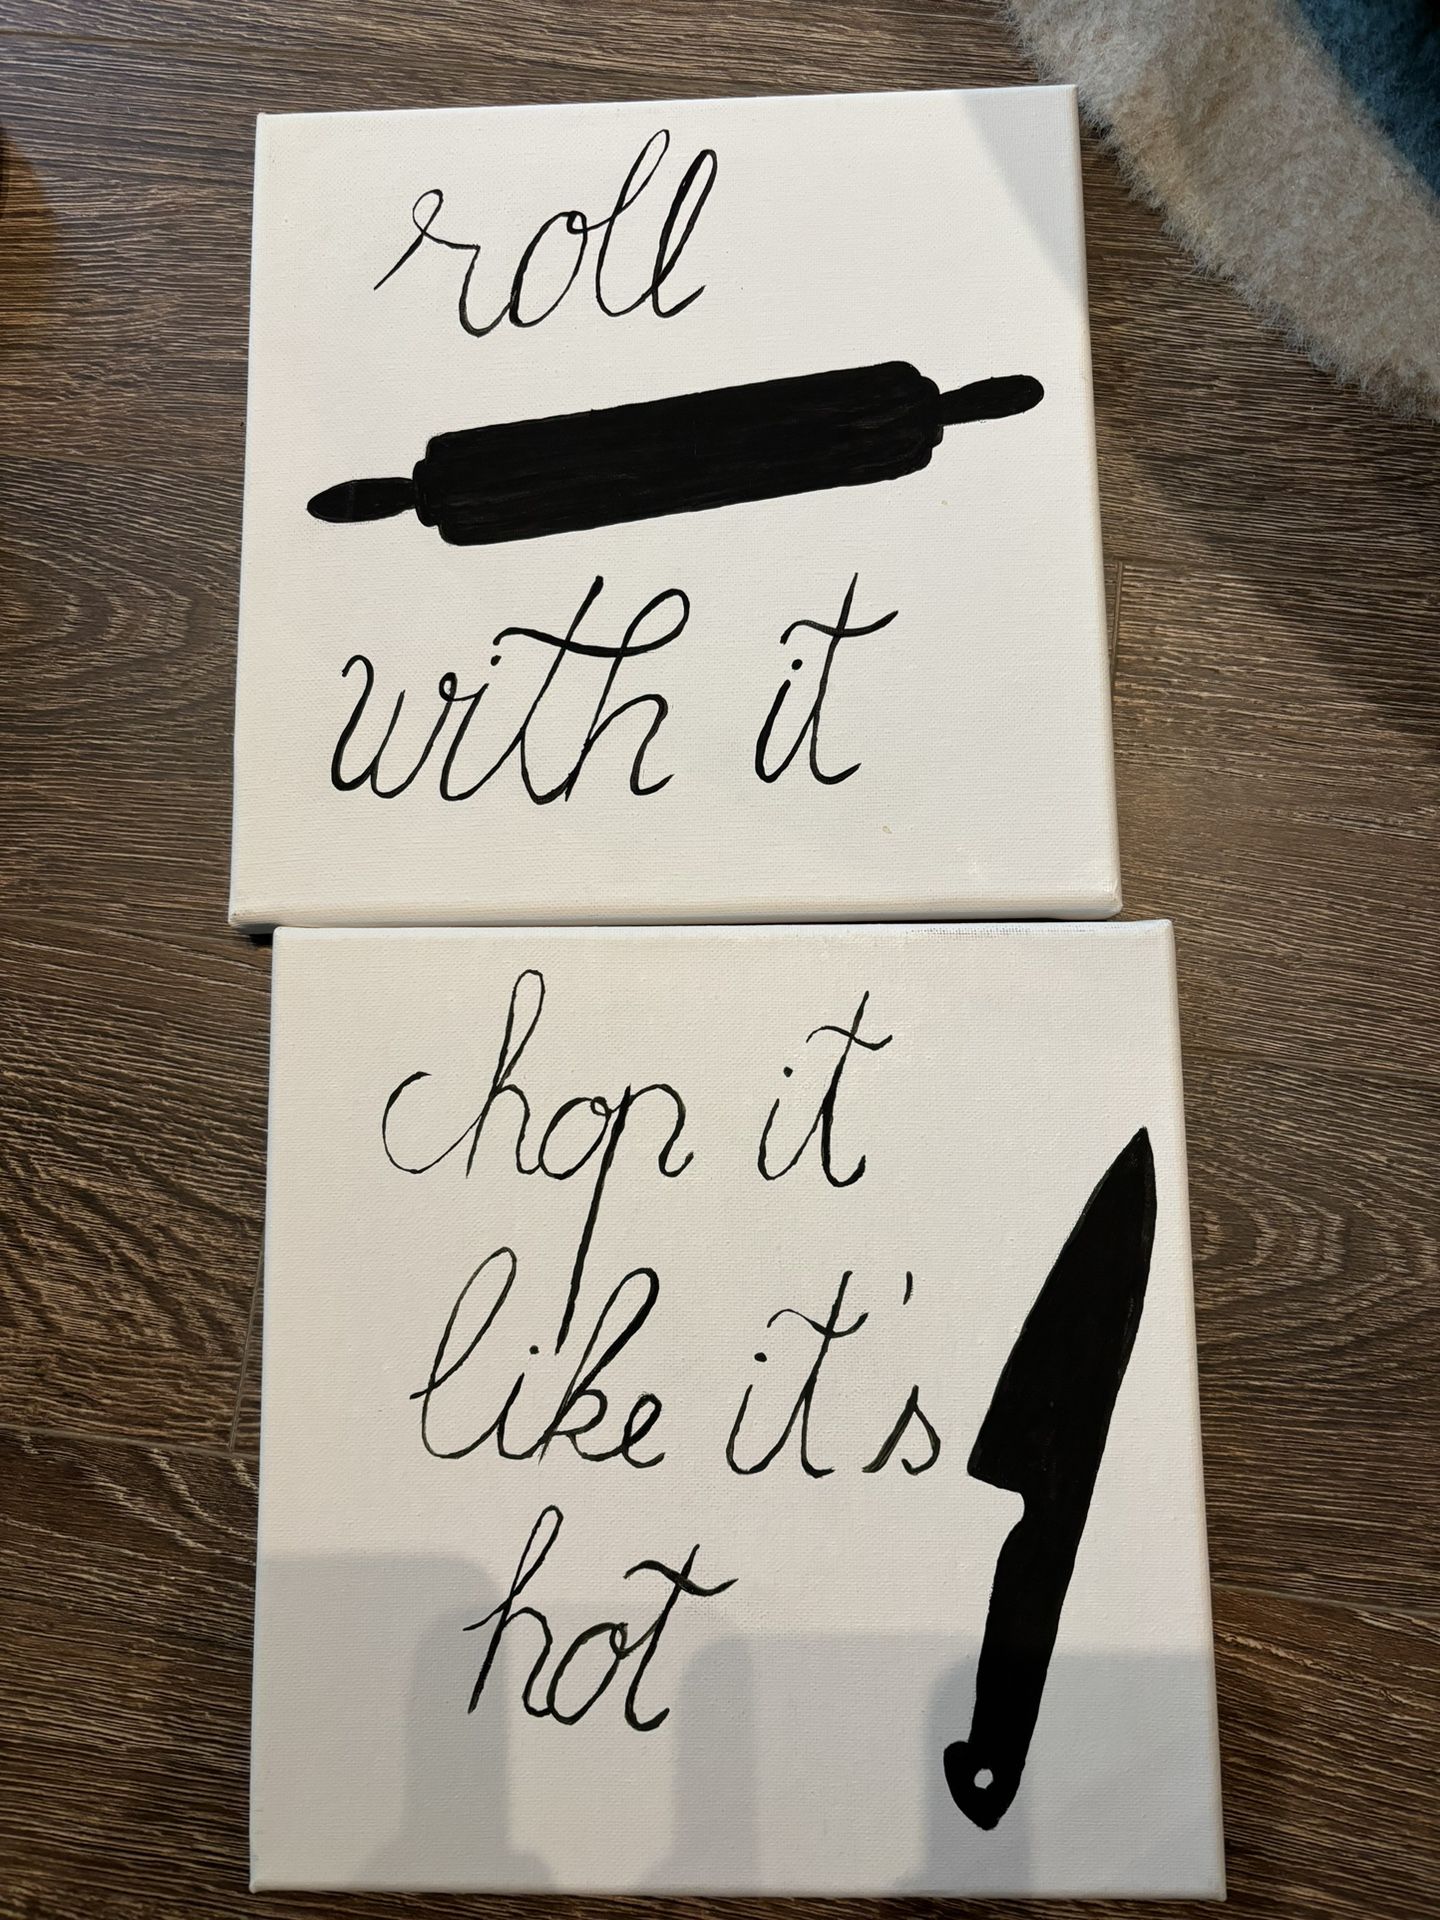 roll
with it
chop it
like it's
hot